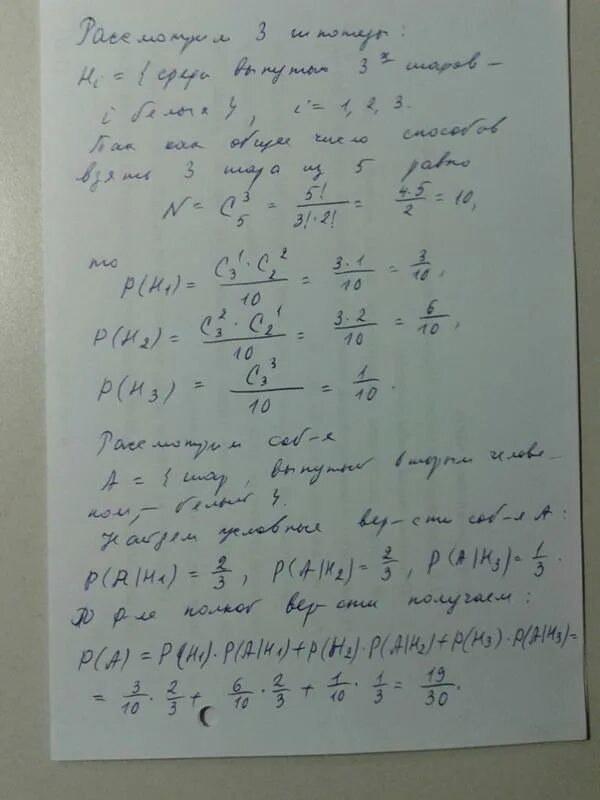 Рассмотрим 3 гипотезы:
Hi = { среди вынутых 3х шаров –
i белых }, i = 1, 2, 3.
Так как общее число способов
взять 3 шара из 5 равно
N = C₅³ = 5!/(3!·2!) = (4·5)/2 = 10,
то
P(H₁) = (C₃¹·C₂²)/10 = (3·1)/10 = 3/10,
P(H₂) = (C₃²·C₂¹)/10 = (3·2)/10 = 6/10,
P(H₃) = C₃³/10 = 1/10.
Рассмотрим соб-я
A = { шар, вынутый вторым челове-
ком, – белый }.
Найдем условные вер-сти соб-я A:
P(A|H₁) = 2/3, P(A|H₂) = 2/3, P(A|H₃) = 1/3.
По ф-ле полной вер-сти получаем:
P(A) = P(H₁)·P(A|H₁)+P(H₂)·P(A|H₂)+P(H₃)·P(A|H₃)=
= 3/10 · 2/3 + 6/10 · 2/3 + 1/10 · 1/3 = 19/30.